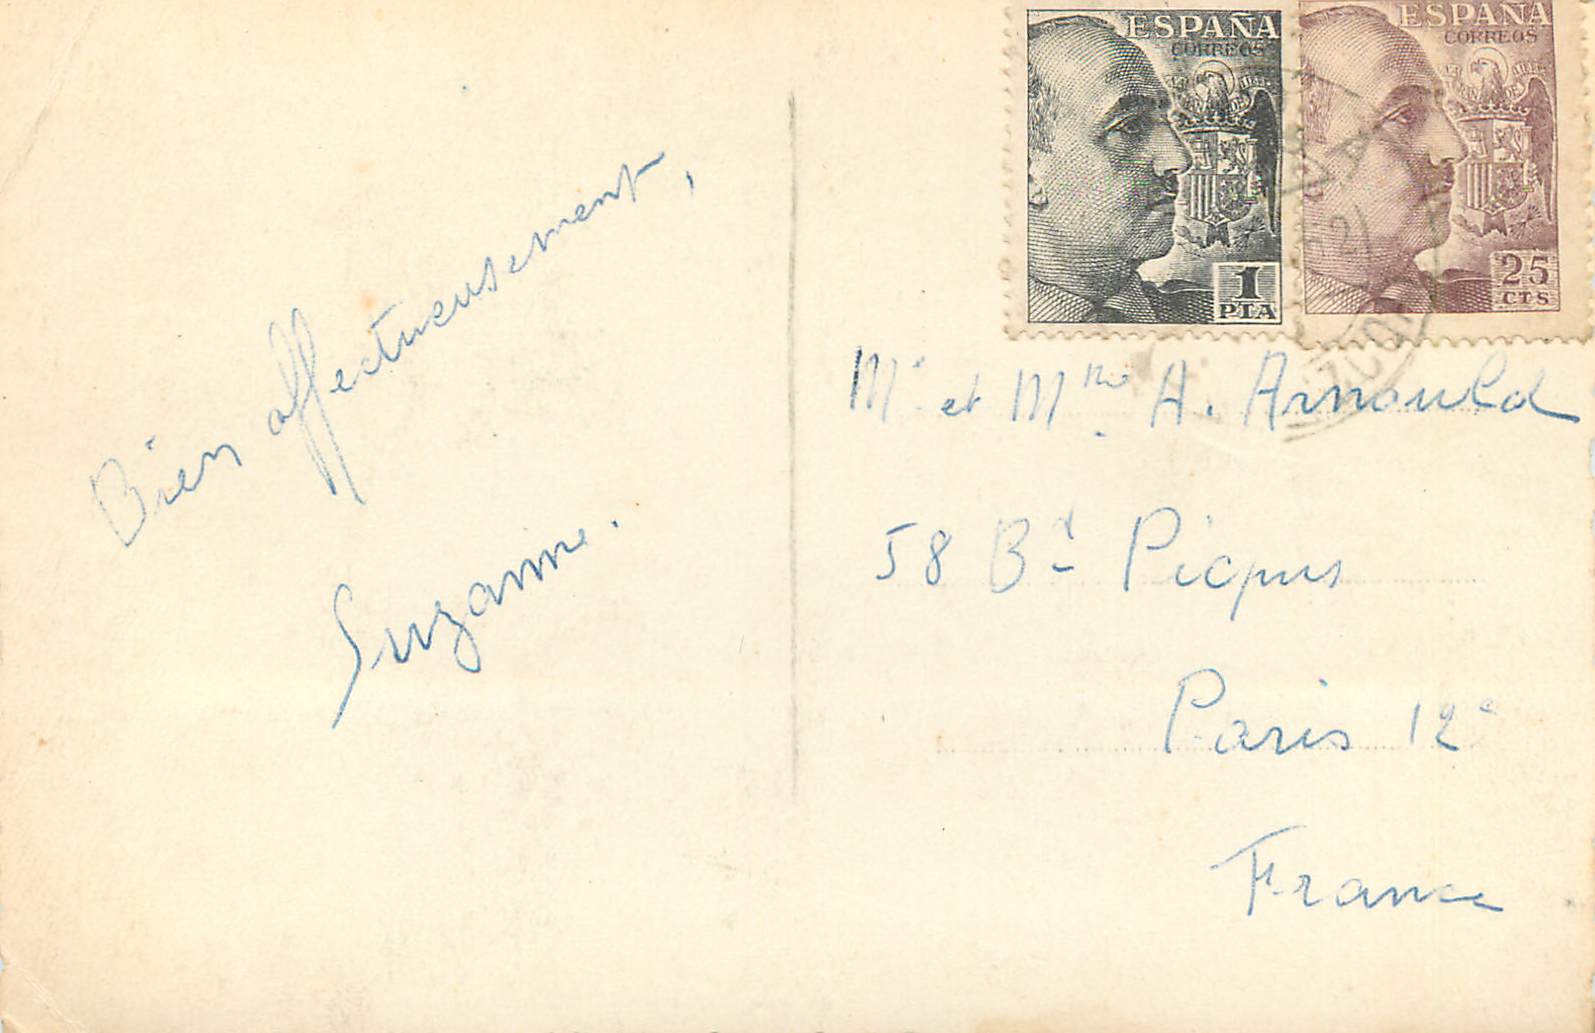 ESPAÑA
CORREOS
1
PTA
ESPAÑA
CORREOS
25
CTS
Bien affectueusement,
Suzanne.
Mr et Mme A. Arnould
58 Bd Picpus
Paris 12e
France